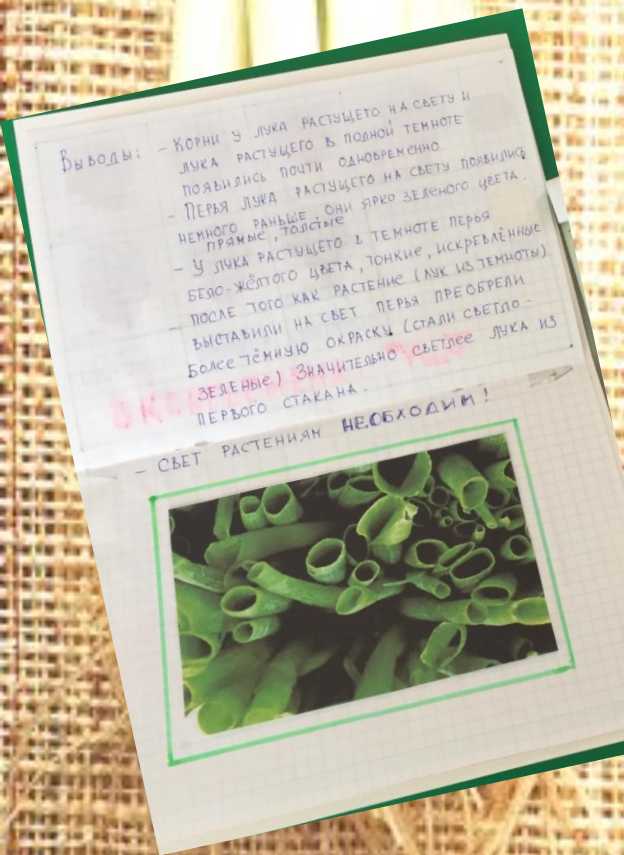 Выводы: – Корни у лука растущего на свету и
лука растущего в полной темноте
появились почти одновременно.
– Перья лука растущего на свету появились
немного раньше. Они ярко зеленого цвета.
прямые, толстые
– У лука растущего в темноте перья
бело-жёлтого цвета, тонкие, искревлённые
– После того как растение (лук из темноты)
выставили на свет перья преобрели
более тёмную окраску (стали светло-
зеленые) значительно светлее лука из
первого стакана.
– Свет растениям необходим!